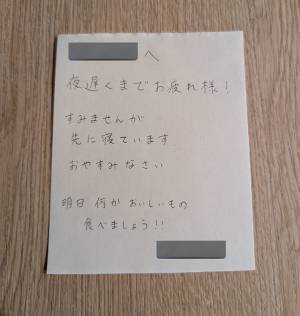 へ
夜遅くまでお疲れ様!
すみませんが
先に寝ています
おやすみなさい
明日何かおいしいもの
食べましょう!!